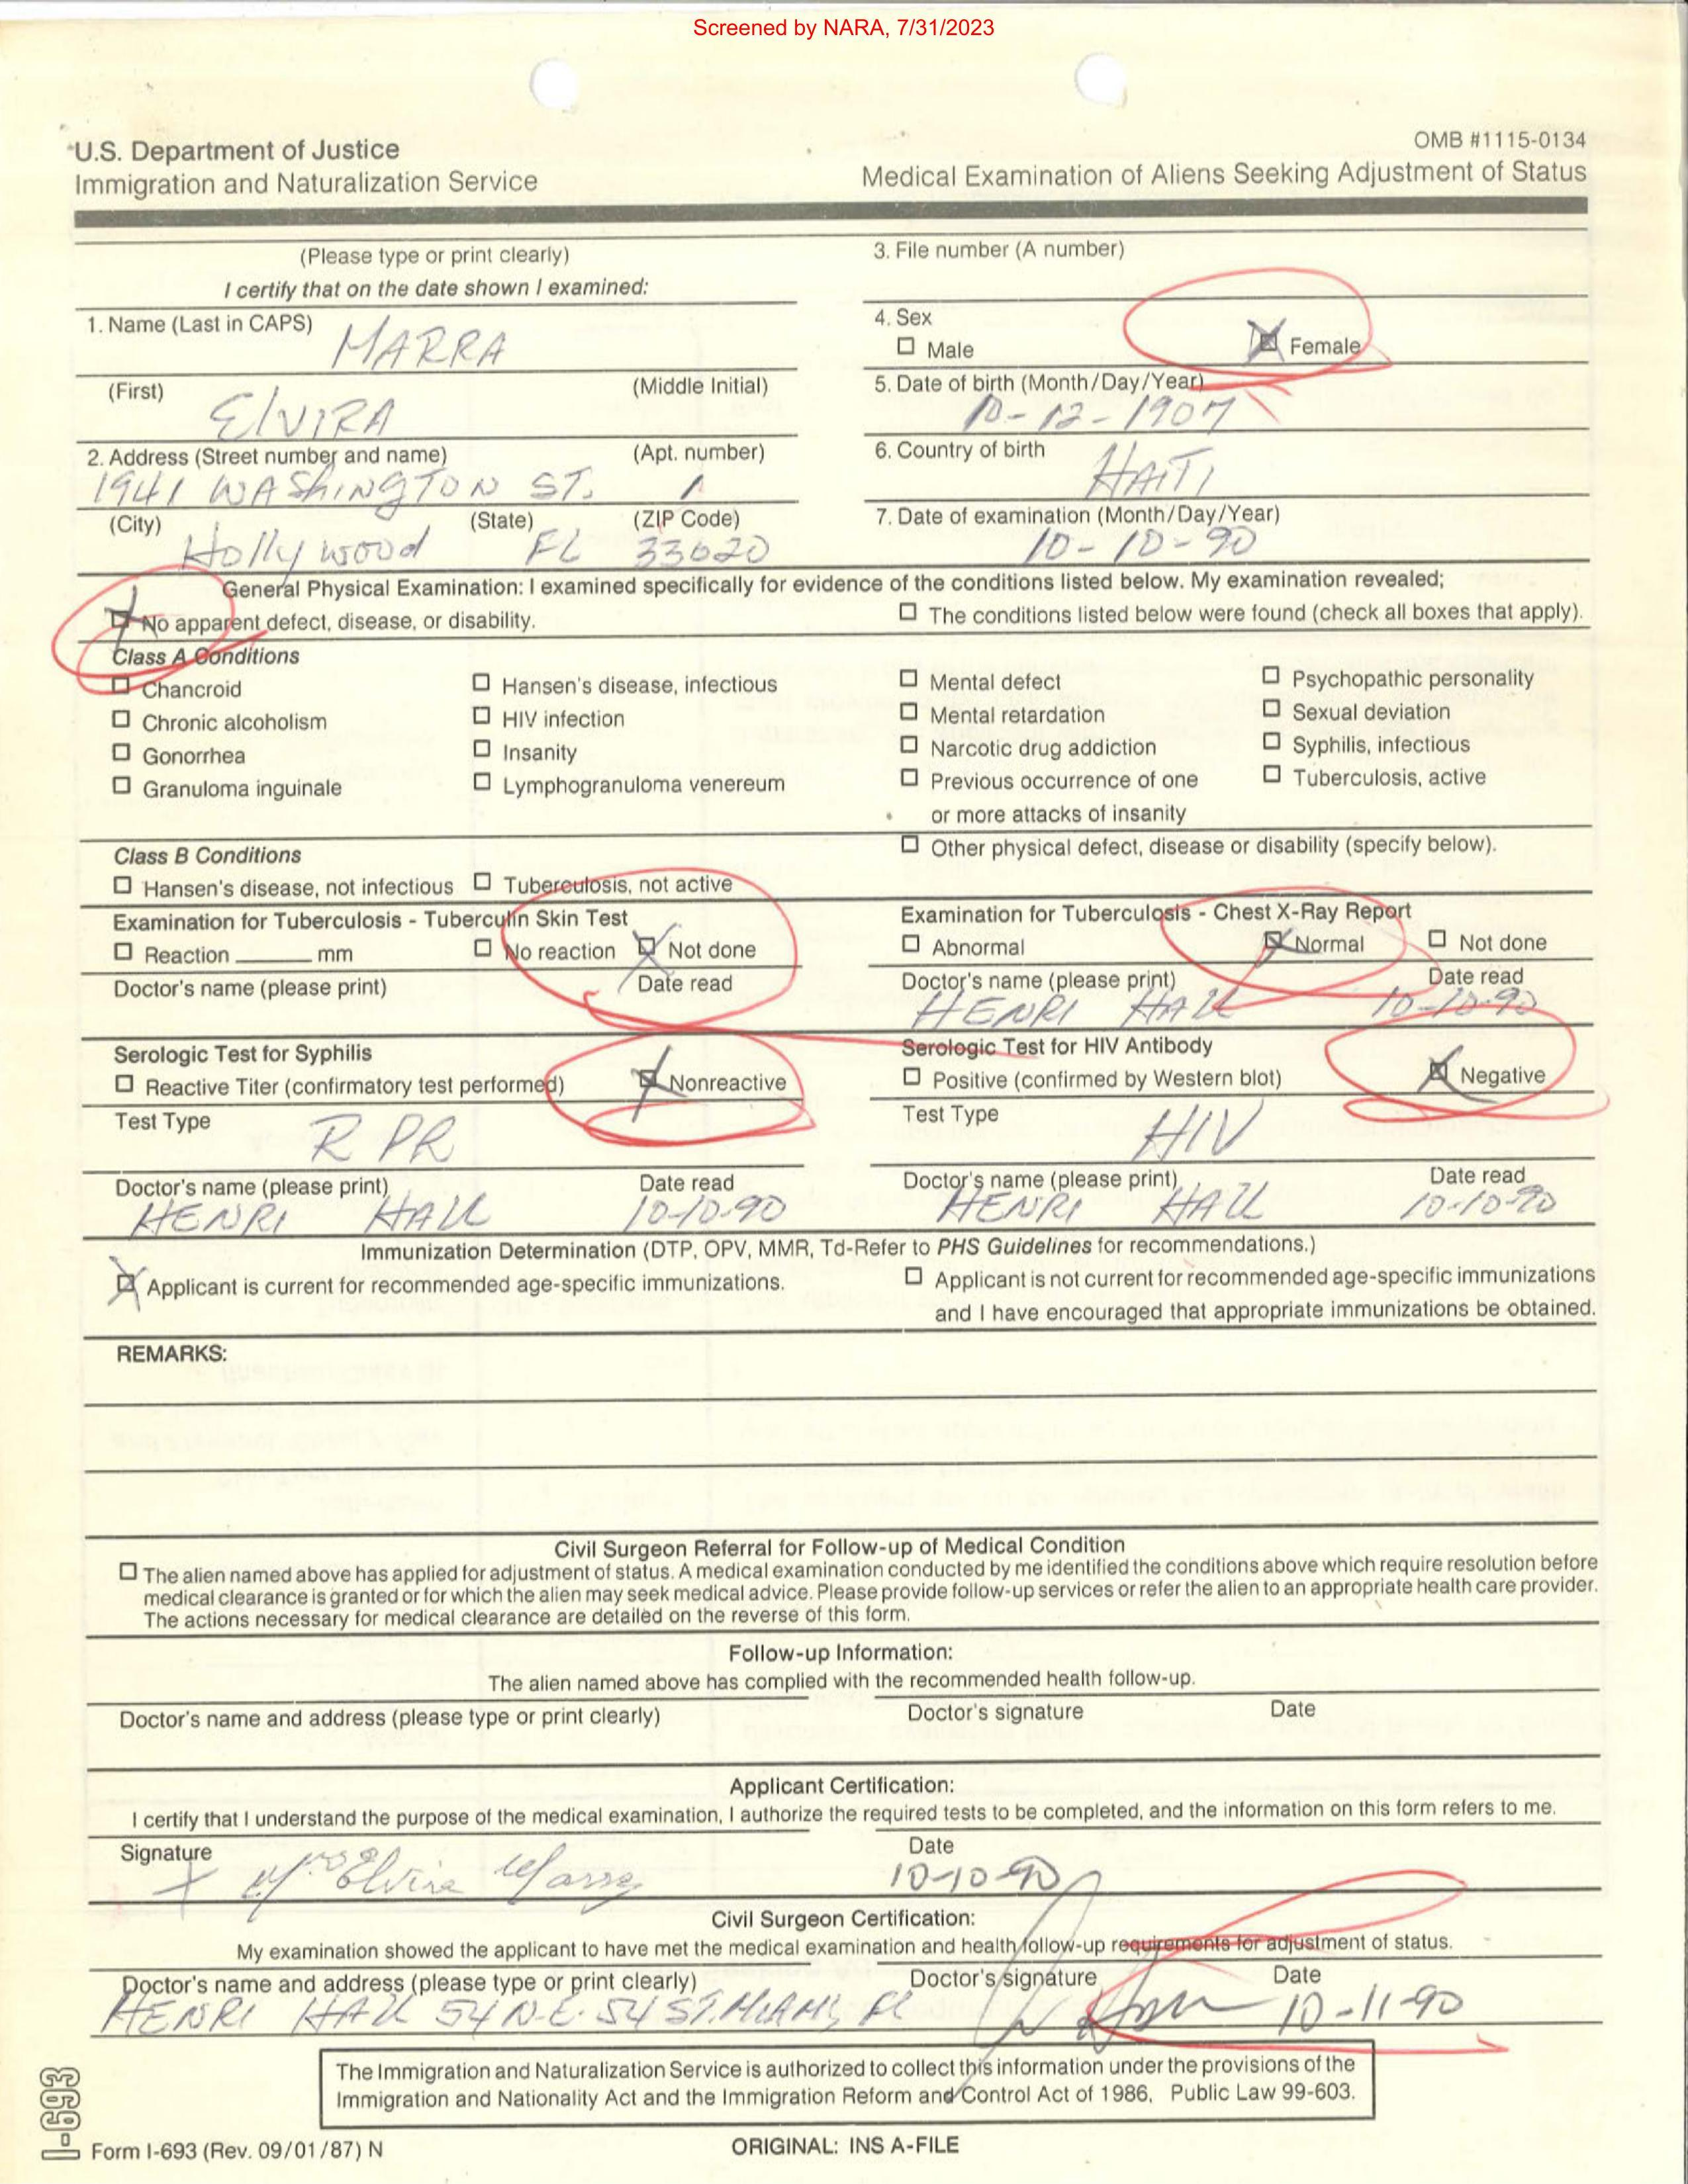 Screened by NARA, 7/31/2023
OMB #1115-0134
U.S. Department of Justice
Immigration and Naturalization Service
Medical Examination of Aliens Seeking Adjustment of Status
(Please type or print clearly)
I certify that on the date shown I examined:
3. File number (A number)
1. Name (Last in CAPS)
MARRA
4. Sex
Male
Female
(First) (Middle Initial)
ElVIRA
5. Date of birth (Month/Day/Year)
10-12-1907
2. Address (Street number and name) (Apt. number)
1941 WAShINGTON ST. 1
6. Country of birth
HAITI
(City) (State) (ZIP Code)
Hollywood FL 33020
7. Date of examination (Month/Day/Year)
10-10-90
General Physical Examination: I examined specifically for evidence of the conditions listed below. My examination revealed;
No apparent defect, disease, or disability.
The conditions listed below were found (check all boxes that apply).
Class A Conditions
Chancroid Hansen's disease, infectious Mental defect Psychopathic personality
Chronic alcoholism HIV infection Mental retardation Sexual deviation
Gonorrhea Insanity Narcotic drug addiction Syphilis, infectious
Granuloma inguinale Lymphogranuloma venereum Previous occurrence of one Tuberculosis, active
or more attacks of insanity
Class B Conditions
Other physical defect, disease or disability (specify below).
Hansen's disease, not infectious Tuberculosis, not active
Examination for Tuberculosis - Tuberculin Skin Test
Reaction mm No reaction Not done
Doctor's name (please print) Date read
Examination for Tuberculosis - Chest X-Ray Report
Abnormal Normal Not done
Doctor's name (please print) Date read
HENRI HALL 10-10-90
Serologic Test for Syphilis
Reactive Titer (confirmatory test performed) Nonreactive
Test Type
RPR
Doctor's name (please print) Date read
HENRI HALL 10-10-90
Serologic Test for HIV Antibody
Positive (confirmed by Western blot) Negative
Test Type
HIV
Doctor's name (please print) Date read
HENRI HALL 10-10-90
Immunization Determination (DTP, OPV, MMR, Td-Refer to PHS Guidelines for recommendations.)
Applicant is current for recommended age-specific immunizations.
Applicant is not current for recommended age-specific immunizations
and I have encouraged that appropriate immunizations be obtained.
REMARKS:
Civil Surgeon Referral for Follow-up of Medical Condition
The alien named above has applied for adjustment of status. A medical examination conducted by me identified the conditions above which require resolution before
medical clearance is granted or for which the alien may seek medical advice. Please provide follow-up services or refer the alien to an appropriate health care provider.
The actions necessary for medical clearance are detailed on the reverse of this form.
Follow-up Information:
The alien named above has complied with the recommended health follow-up.
Doctor's name and address (please type or print clearly) Doctor's signature Date
Applicant Certification:
I certify that I understand the purpose of the medical examination, I authorize the required tests to be completed, and the information on this form refers to me.
Signature Date
X Mrs Elvira Marra 10-10-90
Civil Surgeon Certification:
My examination showed the applicant to have met the medical examination and health follow-up requirements for adjustment of status.
Doctor's name and address (please type or print clearly) Doctor's signature Date
HENRI HALL 54 N.E. 54 ST. MIAMI, FL 10-11-90
The Immigration and Naturalization Service is authorized to collect this information under the provisions of the
Immigration and Nationality Act and the Immigration Reform and Control Act of 1986, Public Law 99-603.
I-693
Form I-693 (Rev. 09/01/87) N
ORIGINAL: INS A-FILE